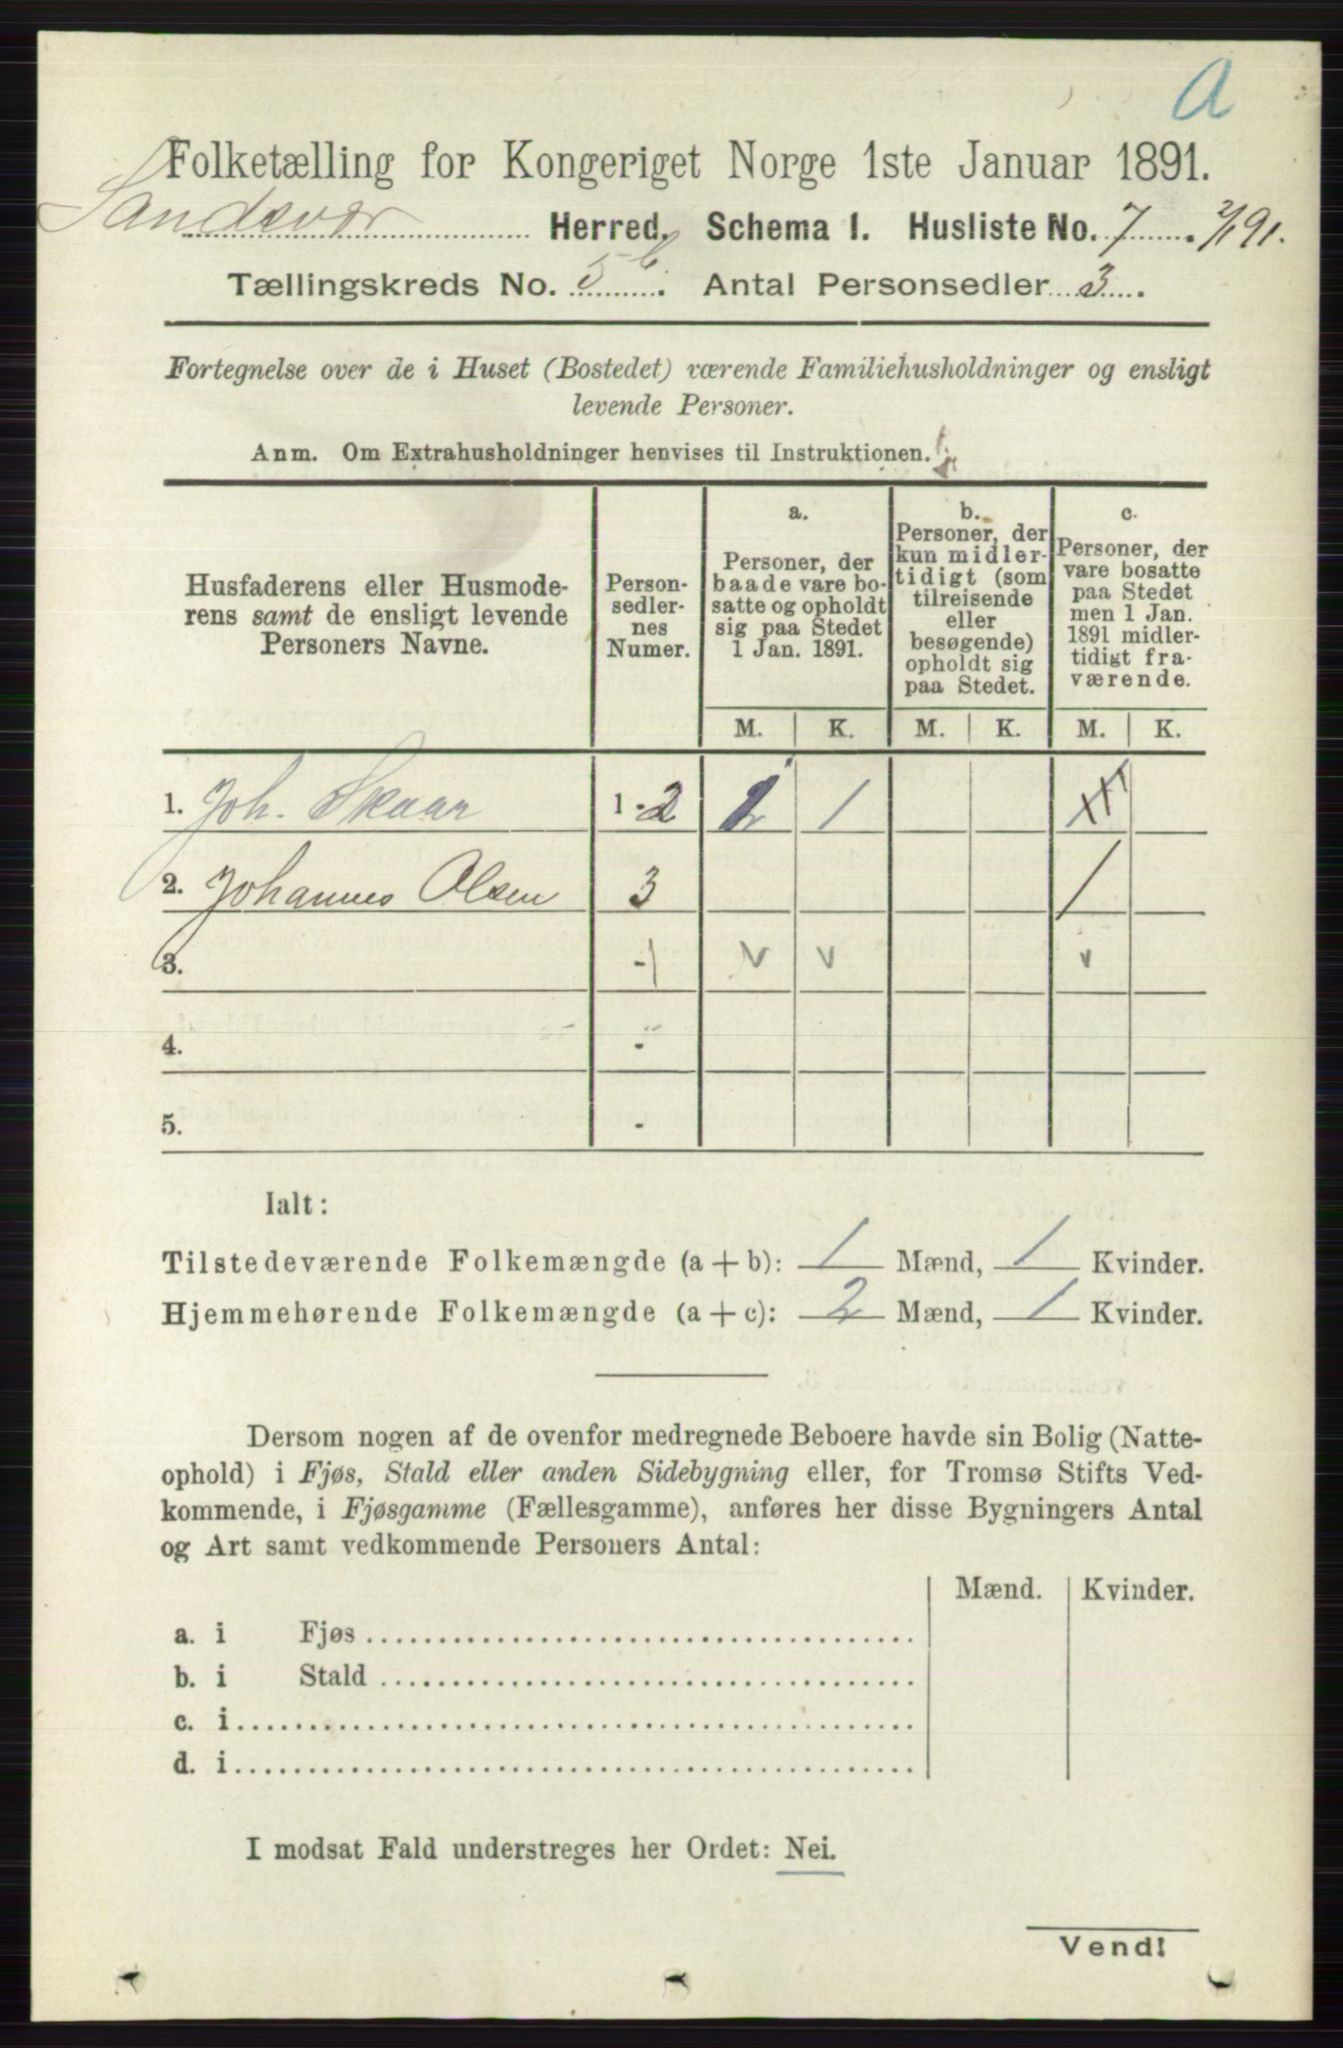 A
Folketælling for Kongeriget Norge 1ste Januar 1891.
Sandsvær Herred. Schema 1. Husliste No. 7. 2/1 91.
Tællingskreds No. 5 b. Antal Personsedler 3.
Fortegnelse over de i Huset (Bostedet) værende Familiehusholdninger og ensligt
levende Personer.
Anm. Om Extrahusholdninger henvises til Instruktionen.
Husfaderens eller Husmode-
rens samt de ensligt levende
Personers Navne.
Person-
sedler-
nes
Numer.
a.
Personer, der
baade vare bo-
satte og opholdt
sig paa Stedet
1 Jan. 1891.
b.
Personer, der
kun midler-
tidigt (som
tilreisende
eller
besøgende)
opholdt sig
paa Stedet.
c.
Personer, der
vare bosatte
paa Stedet
men 1 Jan.
1891 midler-
tidigt fra-
værende.
M. K. M. K. M. K.
1. Joh. Skaar 1-2 1
2. Johannes Olsen 3 1
3. - v v v
4. -
5. -
Ialt:
Tilstedeværende Folkemængde (a + b): 1 Mænd, 1 Kvinder.
Hjemmehørende Folkemængde (a + c): 2 Mænd, 1 Kvinder.
Dersom nogen af de ovenfor medregnede Beboere havde sin Bolig (Natte-
ophold) i Fjøs, Stald eller anden Sidebygning eller, for Tromsø Stifts Ved-
kommende, i Fjøsgamme (Fællesgamme), anføres her disse Bygningers Antal
og Art samt vedkommende Personers Antal:
Mænd. Kvinder.
a. i Fjøs
b. i Stald
c. i
d. i
I modsat Fald understreges her Ordet: Nei.
Vend!